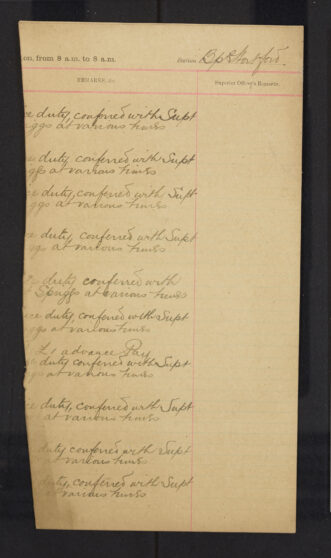 on, from 8 a.m. to 8 a.m. Station Bp Stortford.
REMARKS, &c. Superior Officer's Remarks.
ce duty, conferred with Supt
iggs at various times
ce duty, conferred with Supt
ggs at various times
ce duty, conferred with Supt
ggs at various times
ce duty, conferred with Supt
ggs at various times
duty conferred with
Spriggs at various times
ce duty, conferred with Supt
ggs at various times
To advance Pay
duty conferred with Supt
at various times
ce duty, conferred with Supt
ggs at various times
duty conferred with Supt
at various times
duty, conferred with Supt
at various times